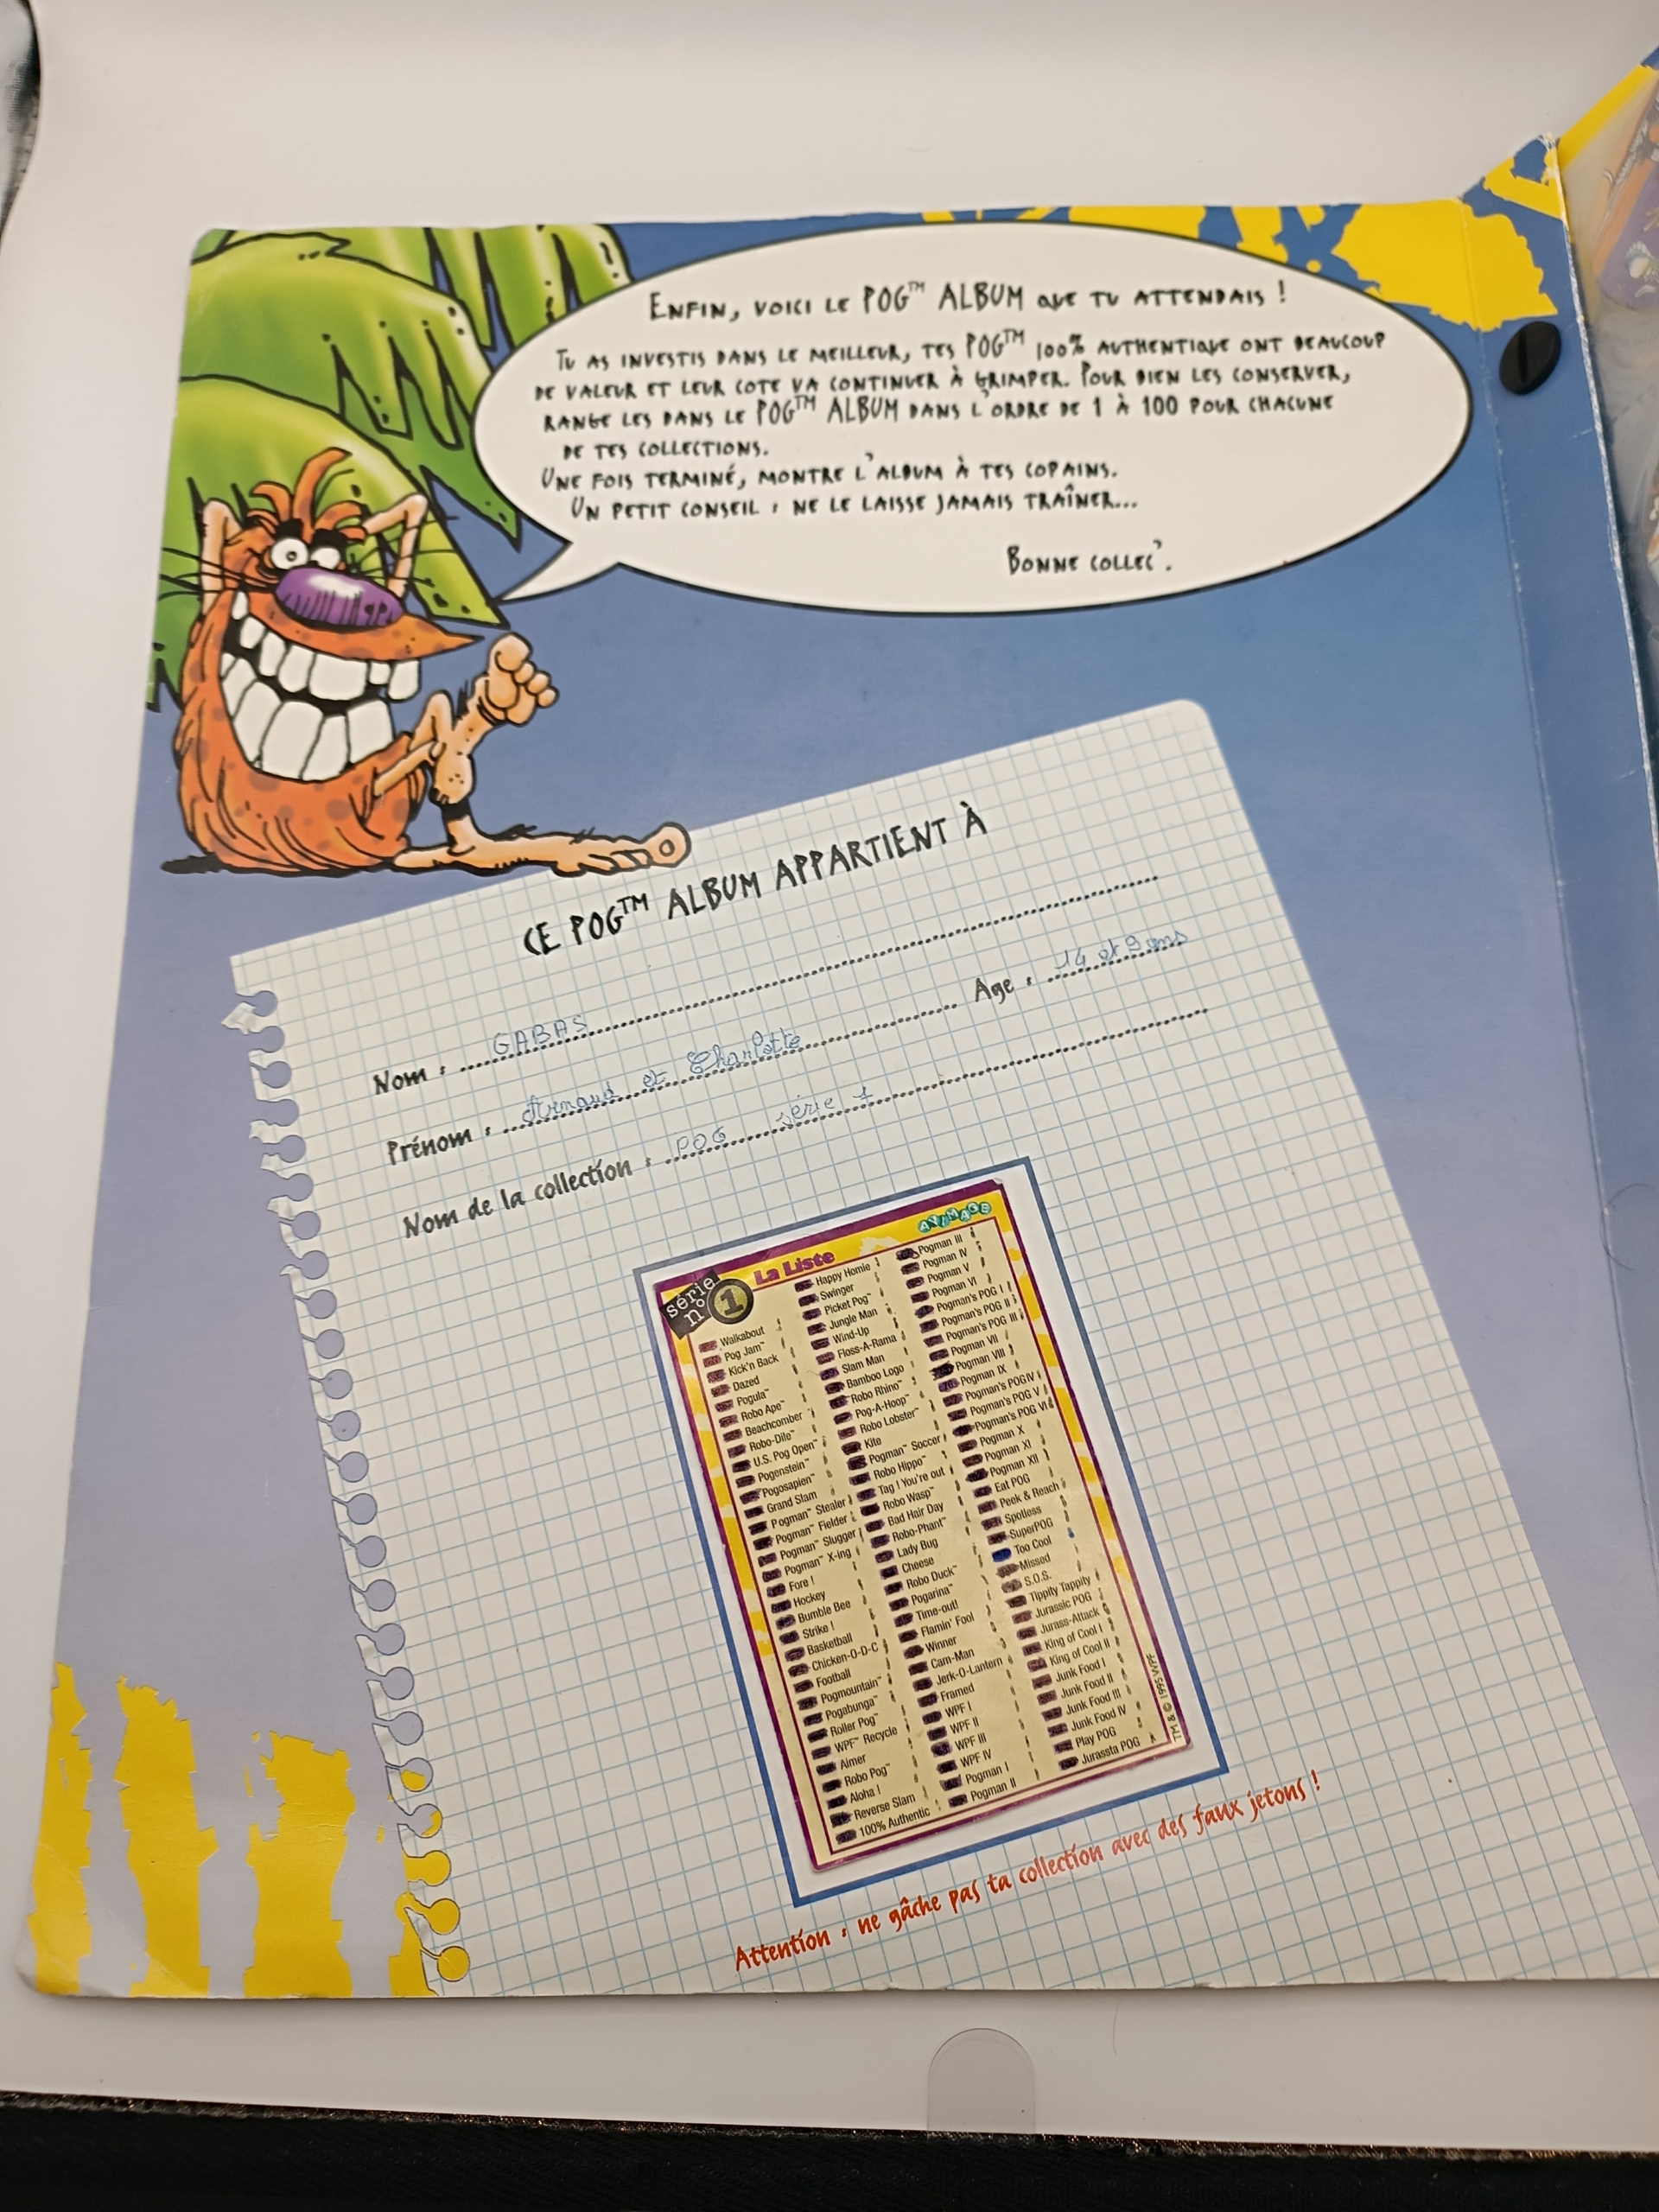 ENFIN, VOICI LE POG™ ALBUM QUE TU ATTENDAIS !
TU AS INVESTIS DANS LE MEILLEUR, TES POG™ 100% AUTHENTIQUE ONT BEAUCOUP
DE VALEUR ET LEUR COTE VA CONTINUER À GRIMPER. POUR BIEN LES CONSERVER,
RANGE LES DANS LE POG™ ALBUM DANS L'ORDRE DE 1 À 100 POUR CHACUNE
DE TES COLLECTIONS.
UNE FOIS TERMINÉ, MONTRE L'ALBUM À TES COPAINS.
UN PETIT CONSEIL : NE LE LAISSE JAMAIS TRAÎNER...
BONNE COLLEC'.
CE POG™ ALBUM APPARTIENT À
Nom : GABAS
Prénom : Arnaud et Charlotte Age : 14 et 9 ans
Nom de la collection : POG série 1
série n° 1
La Liste
ANIMAGE
Walkabout
Pog Jam™
Kick'n Back
Dazed
Pogula™
Robo Ape™
Beachcomber
Robo-Dile™
U.S. Pog Open™
Pogenstein™
Pogosapien™
Grand Slam
Pogman™ Stealer
Pogman™ Fielder
Pogman™ Slugger
Pogman™ X-ing
Fore !
Hockey
Bumble Bee
Strike !
Basketball
Chicken-O-D-C
Football
Pogmountain™
Pogabunga™
Roller Pog™
WPF™ Recycle
Aimer
Robo Pog™
Aloha !
Reverse Slam
100% Authentic
Happy Homie
Swinger
Picket Pog™
Jungle Man
Wind-Up
Floss-A-Rama
Slam Man
Bamboo Logo
Robo Rhino™
Pog-A-Hoop™
Robo Lobster™
Kite
Pogman™ Soccer
Robo Hippo™
Tag ! You're out
Robo Wasp™
Bad Hair Day
Robo-Phant™
Lady Bug
Cheese
Robo Duck™
Pogarina™
Time-out!
Flamin' Fool
Winner
Cam-Man
Jerk-O-Lantern
Framed
WPF I
WPF II
WPF III
WPF IV
Pogman I
Pogman II
Pogman III
Pogman IV
Pogman V
Pogman VI
Pogman's POG I
Pogman's POG II
Pogman's POG III
Pogman VII
Pogman VIII
Pogman IX
Pogman's POG IV
Pogman's POG V
Pogman's POG VI
Pogman X
Pogman XI
Pogman XII
Eat POG
Peek & Reach
Spotless
SuperPOG
Too Cool
Missed
S.O.S.
Tippity Tappity
Jurassic POG
Jurass-Attack
King of Cool I
King of Cool II
Junk Food I
Junk Food II
Junk Food III
Junk Food IV
Play POG
Jurassta POG
TM & © 1995 WPF
Attention : ne gâche pas ta collection avec des faux jetons !